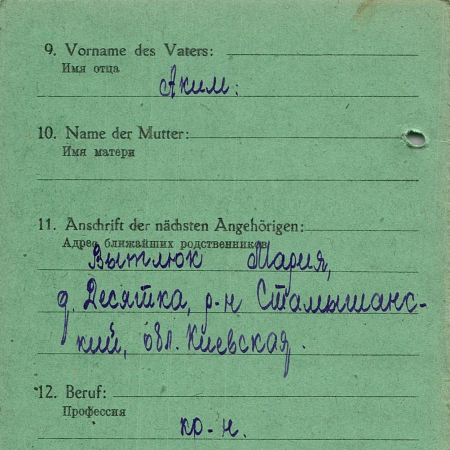 9. Vorname des Vaters:
Имя отца
Аким.
10. Name der Mutter:
Имя матери
11. Anschrift der nächsten Angehörigen:
Адрес ближайших родственников
Вытлюк Мария,
д. Десятка, р-н Стамышанс-
кий, обл. Киевская.
12. Beruf:
Профессия
кр-н.